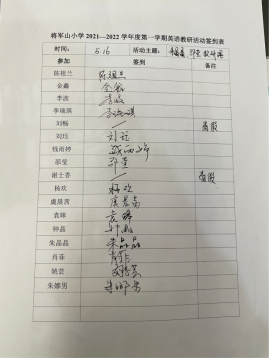 将军山小学2021—2022学年度第一学期英语教研活动签到表
时间： 5.16 活动主题：
参加 签到 备注
陈祖兰 陈祖兰
金鑫 金鑫
李波 李波
李瑞琪 李瑞琪
刘畅
刘珏 刘珏
钱雨婷 钱雨婷
邵莹 邵莹
谢士香
杨欢 杨欢
虞晨茜
袁晞 袁晞
钟晶 钟晶
朱晶晶 朱晶晶
肖菲 肖菲
姚芸
朱娜男 朱娜男